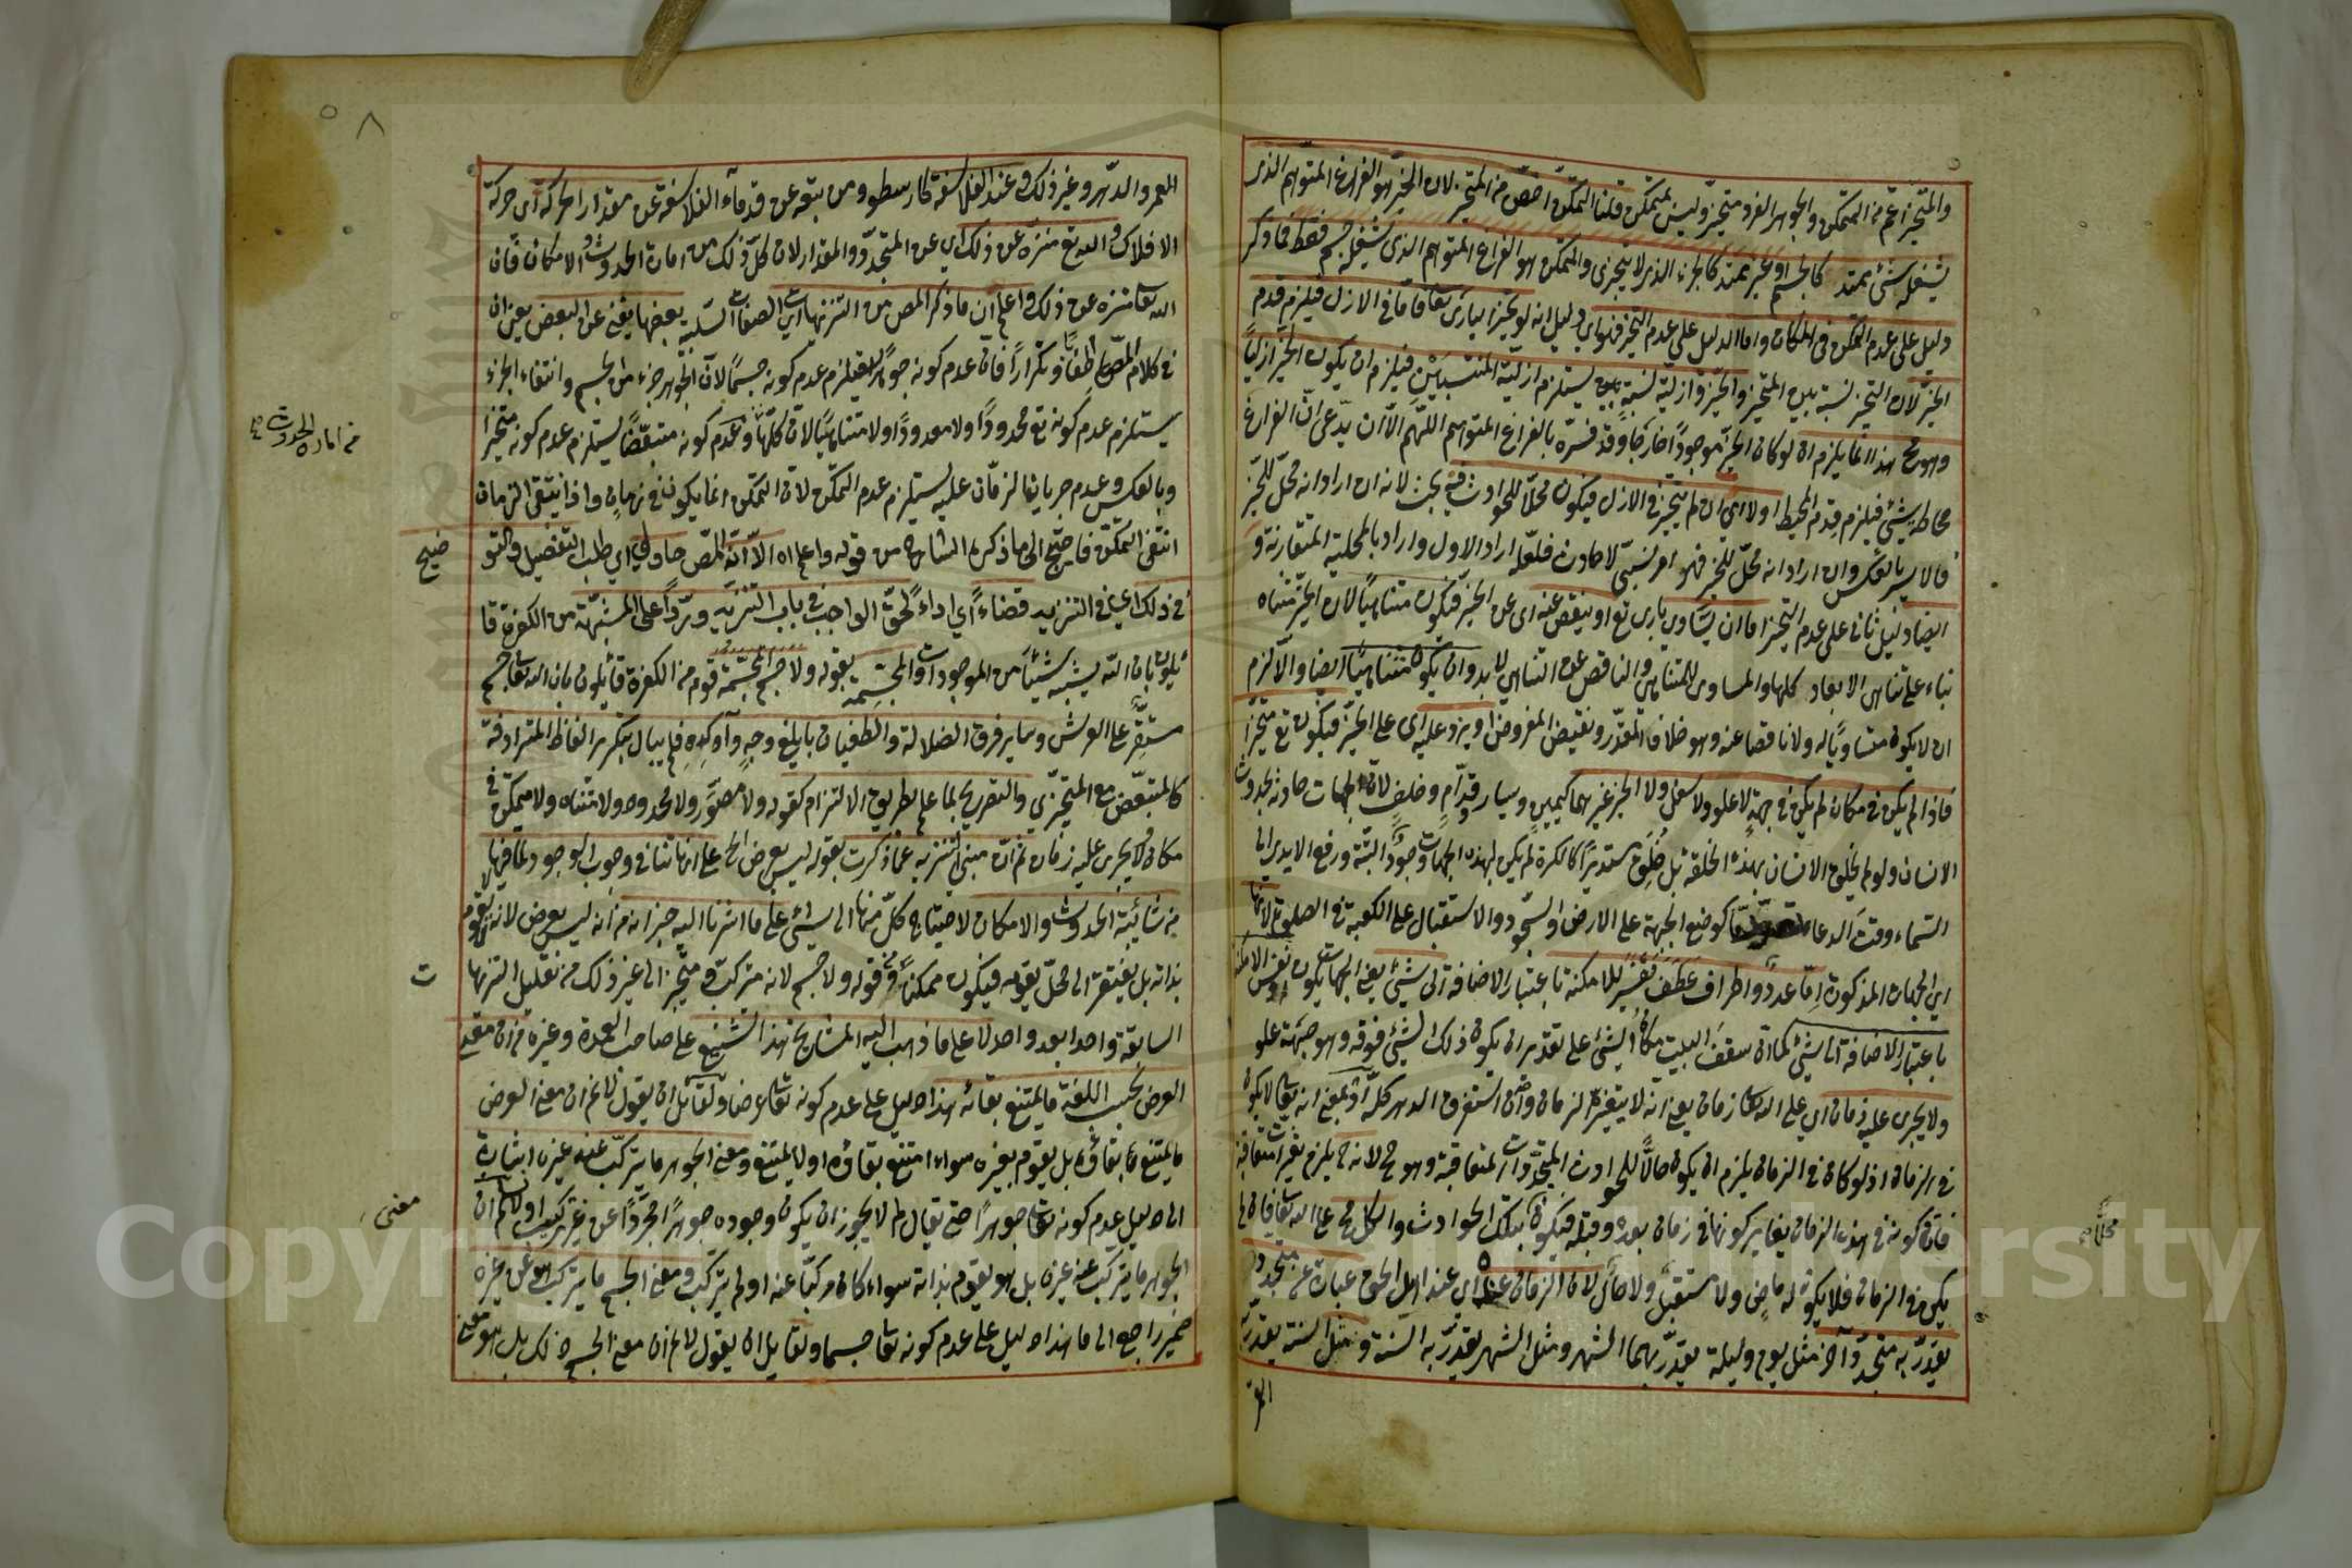 والمتحيز اعم من المتمكن والجوهر الفرد متحيز وليس بمتمكن قلنا التمكن اخص من التحيز لان الحيز هو الفراغ المتوهم الذى
يشغله شئ ممتد كالجسم او غير ممتد كالجزء الذى لا يتجزى والمتمكن هو الفراغ المتوهم الذى يشغله جسم فقط فما ذكر
دليل على عدم التمكن فى المكان واما الدليل على عدم التحيز فهو اي دليل انه لو تحيز البارى تعا فاما فى الازل فيلزم قدم
الحيز لان التحيز نسبة بين المتحيز والحيز وازلية نسبة بين يستلزم ازلية المنتسبين فيلزم ان يكون الحيز ازليا
وهو مح هذا انما يلزم ان لو كان الحيز موجودا خارجا وقد فسره بالفراغ المتوهم اللهم الا ان يدعى ان الفراغ
محاط بشئ فيلزم قدم المحيط اولا اي ان لم يتحيز فى الازل فيكون محلا للحوادث فيه بحث لانه ان اراد انه محل للحيز
فالامر بالعكس وان اراد انه محل للتحيز فهو امر نسبى لا حادث فلعله اراد الاول واراد بالمحلية المتقارنة و
ايضا دليل ثانى على عدم التحيز اما ان يساوى بارى تع او ينقص عنه اى عن الحيز فيكون متناهيا لان الحيز متناه
بناء على تناهى الابعاد كلها والمساوى للمتناهى والناقص عن التناهى لا بد وان يكون متناهيا ايضا والا لزم
ان لا يكون متساويا له ولا ناقصا عنه وهو خلاف المقدر ونقيض المفروض او يزد عليه اى على الحيز فيكون تع متحيزا
فاذا لم يكن فى مكان لم يكن فى جهة لا علو ولا سفل ولا الحيز غيرهما كيمين ويسار وقدام وخلف لان الجهات حادثة بحدوث
الانسان ولو لم يخلق الانسان بهذه الخلقة بل خلق مستديرا كالكرة لم يكن لهذه الجهات وجود البتة ورفع الايدى الى
السماء وقت الدعاء كوضع الجبهة على الارض والسجود والاستقبال على الكعبة فى الصلوة لانها
اي الجهات المذكورة اما حدود واطراف عطف تفسير للامكنة باعتبار الاضافة الى شئ يعنى الجهات يكون نفس الامكنة
باعتبار الاضافة الى شئ كما ان سقف البيت مكان الشئ على تقدير ان يكون ذلك الشئ فوقه وهو جهة علو
ولا يجرى عليه زمان اي على الله تعا زمان يعنى انه لا يتغير الزمان وان استغرق الدهر كله او بمعنى انه تعا لا يكون
فى الزمان اذ لو كان فى الزمان يلزم ان يكون حالا للحوادث المتجددات المتعاقبة وهو مح لانه ح يلزم تغيرات متعاقبة
فان كونه فى هذه الزمان يغاير كونها فى زمان بعده وقبله فيكون بتلك الحوادث والكل مح على الله تعا فان لم
يكن فى الزمان فلا يكون له ماض ولا مستقبل ولا حال لان الزمان عندنا اي عند اهل الحق عبارة عن متجدد
يقدر به متجدد آخر مثل يوم وليلة يقدر بهما الشهر ومثل الشهر يقدر به السنة ومثل السنة يقدر به
العمر
٥٨
العمر والدهر وغير ذلك وعند الفلاسفة كارسطو ومن تبعه عن قدماء الفلاسفة عن مقدار الحركة اى حركة
الافلاك والله تع منزه عن ذلك اي عن المتجدد والمقدار لان كل ذلك من امارة الحدوث والامكان فان
الله تعا منزه عن ذلك واعلم ان ما ذكر المص من التنزيهات اي الصفات السلبية بعضها يغنى عن البعض يعنى ان
فى كلام المص اطنابا وتكرارا فان عدم كونه جوهرا يستلزم عدم كونه جسما لان الجوهر جزء من الجسم وانتفاء الجزء
يستلزم عدم كونه تع محدودا ولا معدودا ولا متناهيا لان كلها وعدم كونه متبعضا يستلزم عدم كونه متحيزا
وبالعكس وعدم جريان الزمان عليه يستلزم عدم التمكن لان التمكن انما يكون فى زمان واذا ينتفى الزمان
انتفى التمكن فاحتج الى ما ذكره الشارح من قوله واعلم اه الا ان المص حاول اي طلب التفصيل والتو
فى ذلك اي فى التنزيه قضاء اي اداء لحق الواجب فى باب التنزيه وردا على المشبهة من الكفرة قا
ئلون بان الله يشبه شيئا من الموجودات والمجسمة بقوله ولا جسم المجسمة قوم من الكفرة قائلون بان الله تعا جسم
مستقر على العرش وساير فرق الضلالة والطغيان بابلغ وجه وآوكده فلم يبال بتكرير الفاظ المترادفة
كالمتبعض مع المتجزى والتصريح بما علم بطريق الالتزام كقوله ولا مصور ولا محدود ولا متناه ولا متمكن فى
مكان ولا يجرى عليه زمان ثم ان مبنى التنزيه عما ذكرت بقوله ليس بعرض الخ على انها تنافى وجوب الوجود لما فيها
من شائبة الحدوث والامكان لاحتياج كل منها الى شئ على ما اشرنا اليه حيز انه من انه ليس بعرض لانه لا يقوم
بذاته بل يفتقر الى محل يقومه فيكون ممكنا ومن قوله ولا جسم لانه متركب ومتحيز الى غير ذلك من تعليل التنزيها
السابقة واحدا بعد واحد لا على ما ذهب اليه المشايخ هذا التشنيع على صاحب العمدة وغيره من ان معنى
العرض بحسب اللغة ما يمتنع بقائه هذا دليل على عدم كونه تعا عرضا ولقائل ان يقول لا نم ان معنى العرض
ما يمتنع بقاؤه بل يقوم بغيره سواء امتنع بقاؤه او لا يمتنع ومعنى الجوهر ما يتركب عنه غيره اشارة
الى دليل عدم كونه تعا جوهرا حتى يقال لم لا يجوز ان يكون وجوده جوهرا مجردا عن غير تركيب اولا نم ان
الجوهر ما يتركب عنه غيره بل هو يقوم بذاته سواء كان مركبا عنه او لم يتركب ومعنى الجسم ما يتركب هو عن غيره
ضمير راجع الى ما هذا دليل على عدم كونه تعا جسما ولقايل ان يقول لا نم ان معنى الجسم ذلك بل هو معنى
من امارة الحدوث
ضيح
ت
معنى
محلا